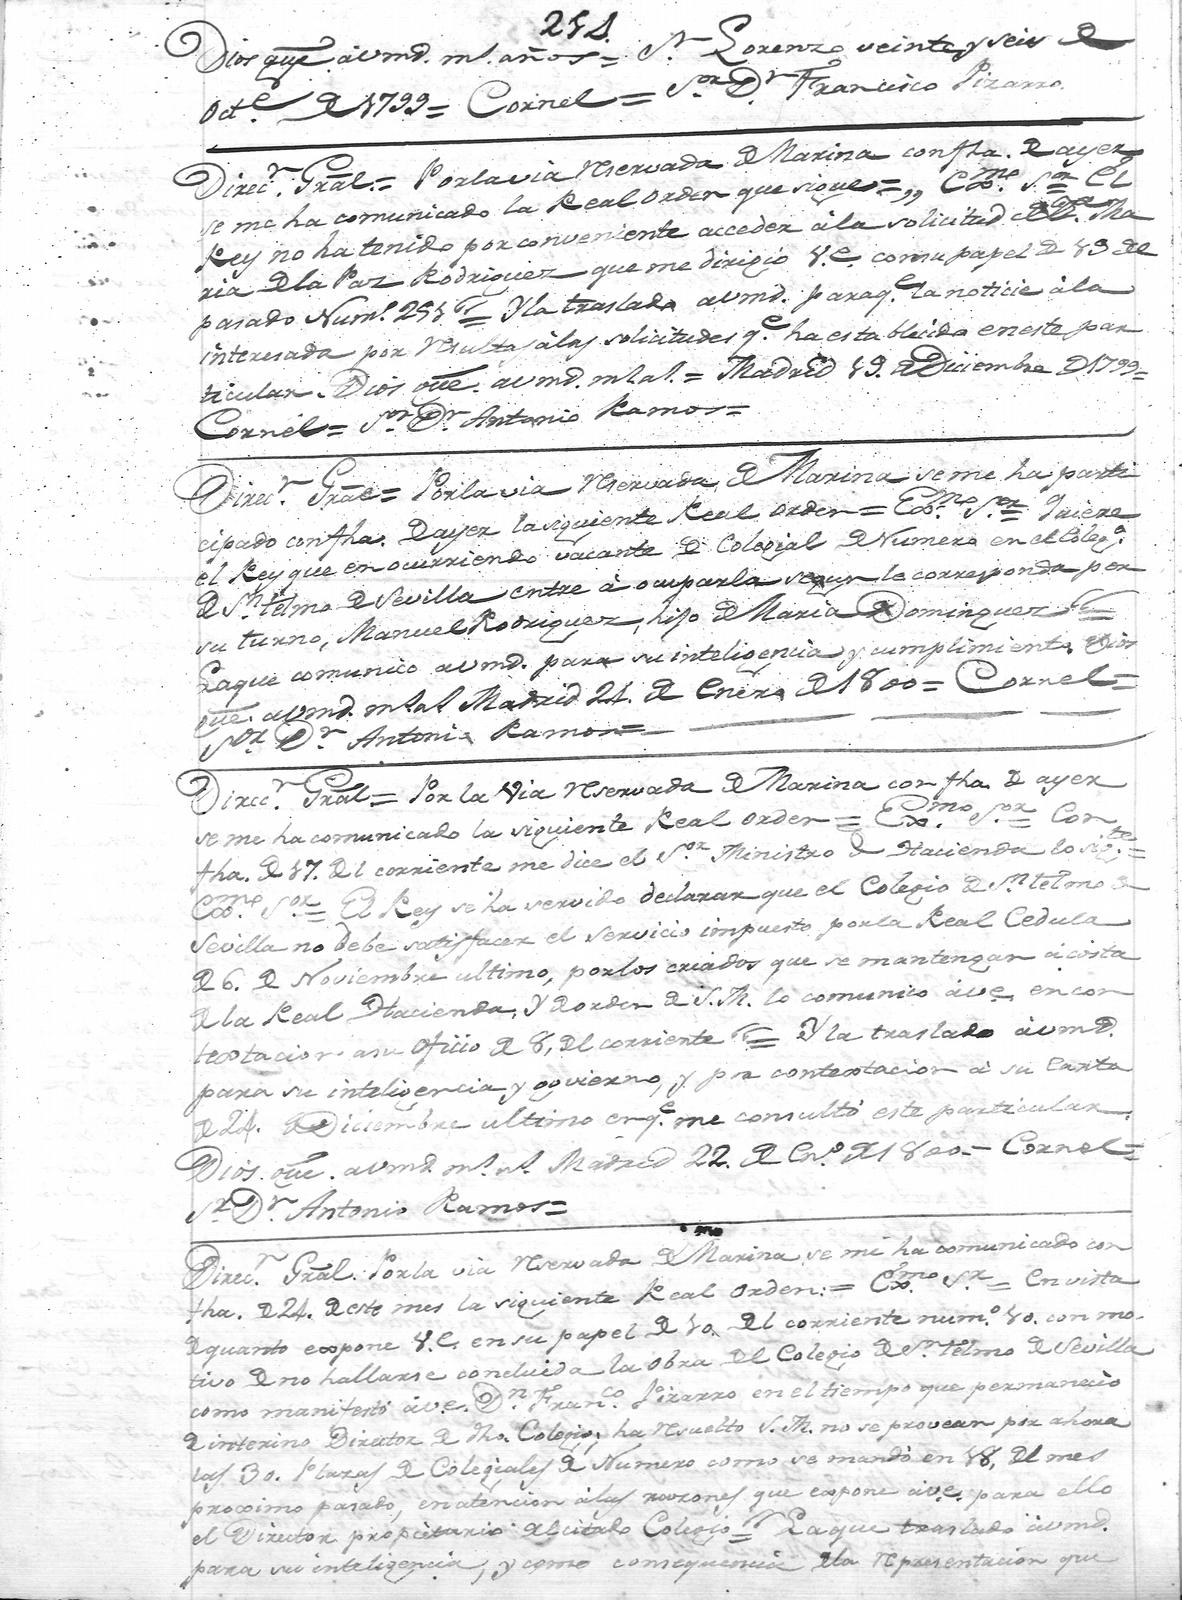 254.
Dios gue. á vmd. ms. años = Sn. Lorenzo veinte y seis de
Octe. de 1799 = Cornel = Sor. Dn. Francisco Pizarro.
Direcr. Gral. = Por la via reservada de Marina con fha. de ayer
se me ha comunicado la Real Orden que sigue = ,, Exmo. Sor. = El
Rey no ha tenido por conveniente acceder á la solicitud de Ma
ria de la Paz Rodriguez que me dirigió V.E. con su papel de 13 del
pasado Numo. 251 = Y la traslado a vmd. para qe. la noticie á la
interesada por resultas á las solicitudes qe. ha establecido en este par
ticular. Dios gue. a vmd. ms. as. = Madrid 19. de Diciembre de 1799 =
Cornel = Sor. Dn. Antonio Ramos =
Direcr. Gral = Por la via reservada de Marina se me ha parti
cipado con fha. de ayer la siguiente Real Orden = Exmo. Sor. = Quiere
el Rey que en ocurriendo vacante de Colegial de Numero en el Colego.
de Sn. telmo de Sevilla entre á ocuparla segun le corresponda por
su turno, Manuel Rodriguez, hijo de Maria Dominguez =
La que comunico a vmd. para su inteligencia y cumplimiento. Dios
gue. a vmd. ms. as. Madrid 21. de Enero de 1800 = Cornel =
Sor. Dn. Antonio Ramos =
Direcr. Gral = Por la Via reservada de Marina con fha. de ayer
se me ha comunicado la siguiente Real Orden = Exmo. Sor. = Con
fha. de 17. del corriente me dice el Sor. Ministro de Hacienda lo sigte. =
Exmo. Sor. = El Rey se ha servido declarar que el Colegio de Sn. telmo de
Sevilla no debe satisfacer el servicio impuesto por la Real Cedula
de 6. de Noviembre ultimo, por los criados que se mantengan á costa
de la Real Hacienda, y de orden de S.M. lo comunico á v.e. en con
textacion a su Oficio de 8, del corriente = Y la traslado á vmd.
para su inteligencia y govierno, y por contextacion á su Carta
de 24. de Diciembre ultimo en qe. me consultó este particular.
Dios gue. a vmd. ms. as. Madrid 22. de Eno. de 1800 = Cornel =
Sr. Dn. Antonio Ramos =
Direcr. Gral. Por la via reservada de Marina se me ha comunicado con
fha. de 24. de este mes la siguiente Real Orden: = Exmo. Sr. = En vista
de quanto expone V.E. en su papel de 10. del corriente numo. 10. con mo-
tivo de no hallarse concluida la obra del Colegio de Sn. telmo de Sevilla
como manifestó á v.e. Dn. Franco. Pizarro en el tiempo que permaneció
de interino Director de dho. Colegio; ha resuelto S.M. no se provean por ahora
las 30. Plazas de Colegiales de Numero como se mandó en 18, del mes
proximo pasado, en atencion á las razones que expone á v.e. para ello
el Director propietario del citado Colegio = La que traslado á vmd.
para su inteligencia, y como consequencia de la representacion que